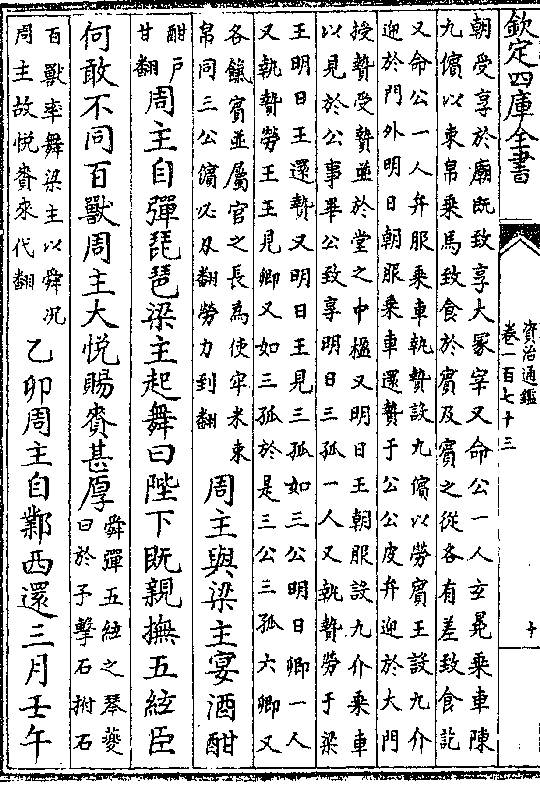 欽定四庫全書
資治通鑑
卷一百七十三
十
朝受享於廟既致享大冢宰又命公一人玄冕乘車陳
九儐以束帛乘馬致食於賓及賓之從各有差致食訖
又命公一人弁服乘車執贄設九儐以勞賓王設九介
迎於門外明日朝服乘車還贄于公公皮弁迎於大門
授贄受贄並於堂之中楹又明日王朝服設九介乘車
以見於公事畢公致享明日三孤一人又執贄勞于梁
王明日王還贄又明日王見三孤如三公明日卿一人
又執贄勞王王見卿又如三孤於是三公三孤六卿又
各餼賓並屬官之長為使牢米束
帛同三公儐必刃翻勞力到翻
周主與梁主宴酒酣
酣户
甘翻
周主自彈琵琶梁主起舞曰陛下既親撫五絃臣
何敢不同百獸周主大悅賜賚甚厚
舜彈五絃之琴夔
曰於予擊石拊石
百獸率舞梁主以舜况
周主故悅賚來代翻
乙卯周主自鄴西還三月壬午